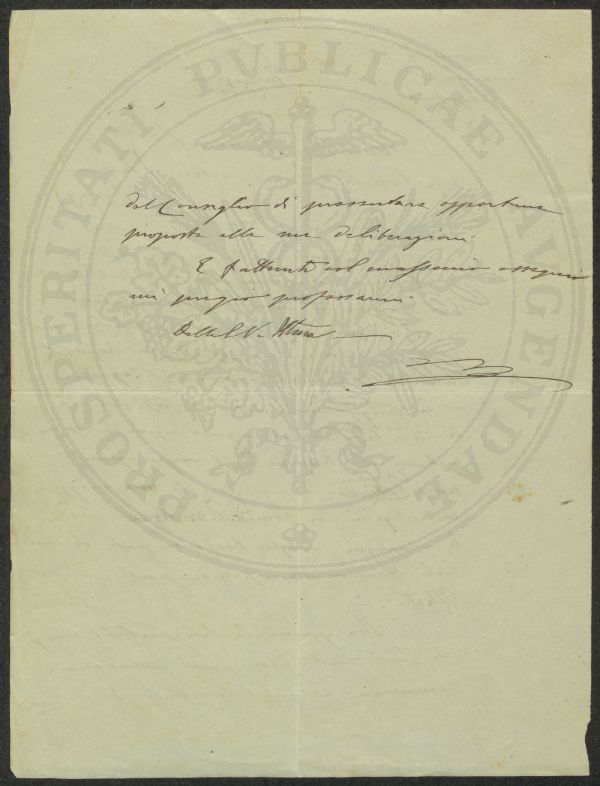 PROSPERITATI PVBLICAE AVGENDAE
del Consiglio di presentare opportune
proposte alle sue deliberazioni.
E frattanto col massimo ossequio
mi pregio professarmi
Della S. V. Ill.ma